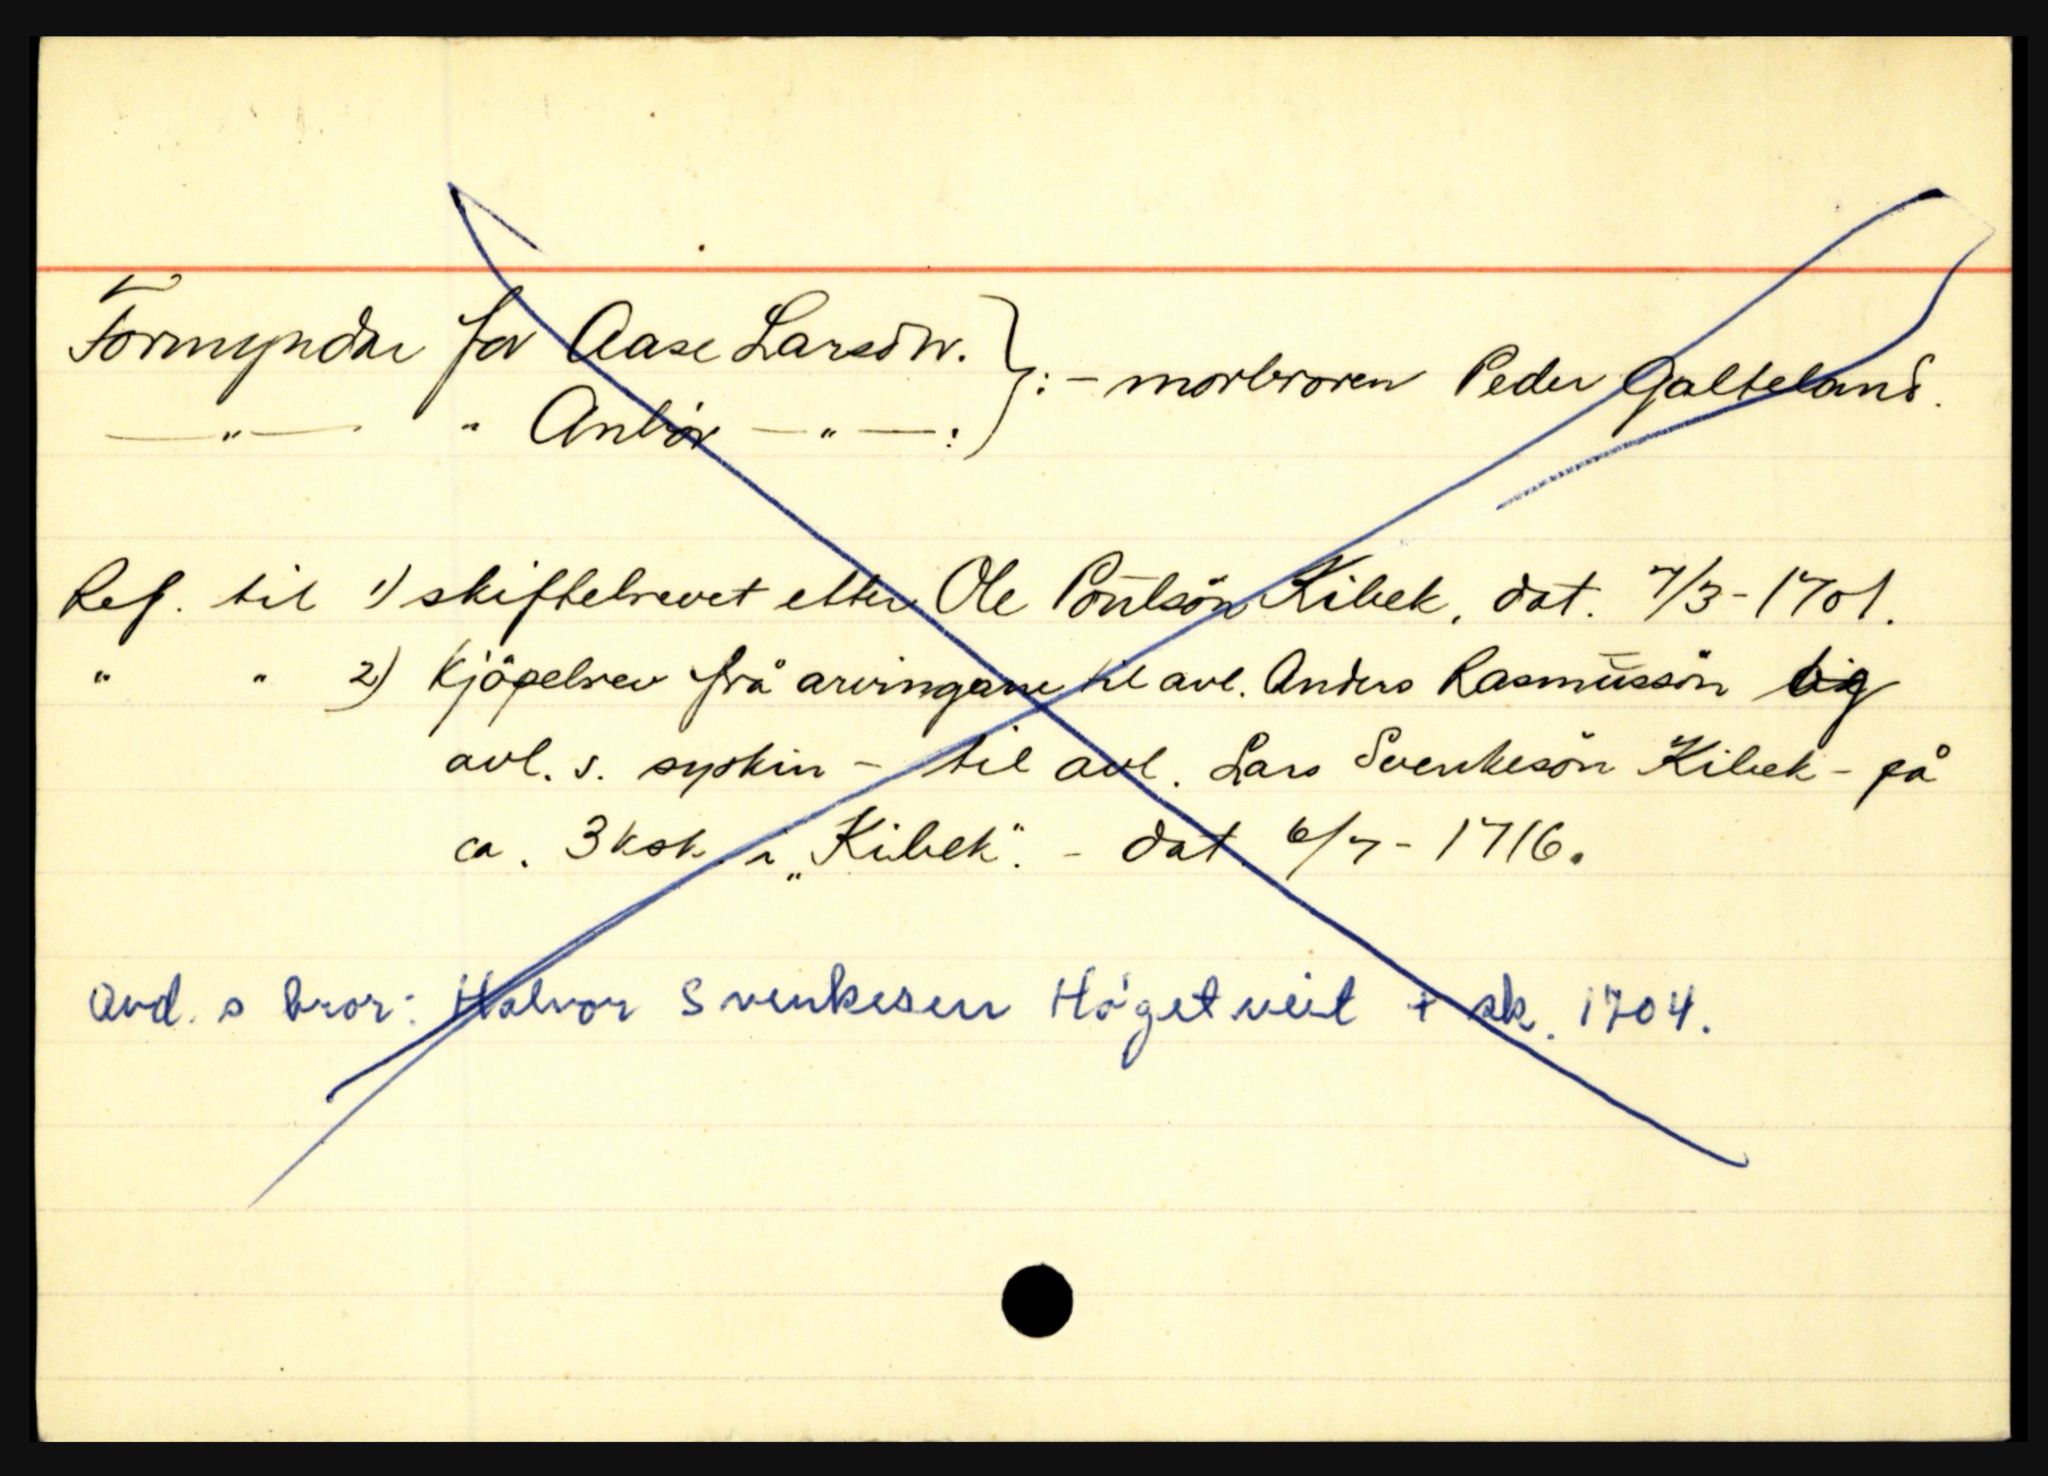 Formyndar for Aase Larsdtr. } : - morbroren Peder Galteland.
—„— " Anbiør —„— :
Ref. til 1) skiftebrevet etter Ole Poulsön Kibek, dat. 7/3 - 1701.
" " 2) Kjöpebrev frå arvingane til avl. Anders Rasmussön og
avl. s. syskin - til avl. Lars Svenkesön Kibek - på
ca. 3 ksk. i „Kibek". - dat. 6/7 - 1716.
Avd. s bror: Halvor Svenkesen Högetveit + sk. 1704.